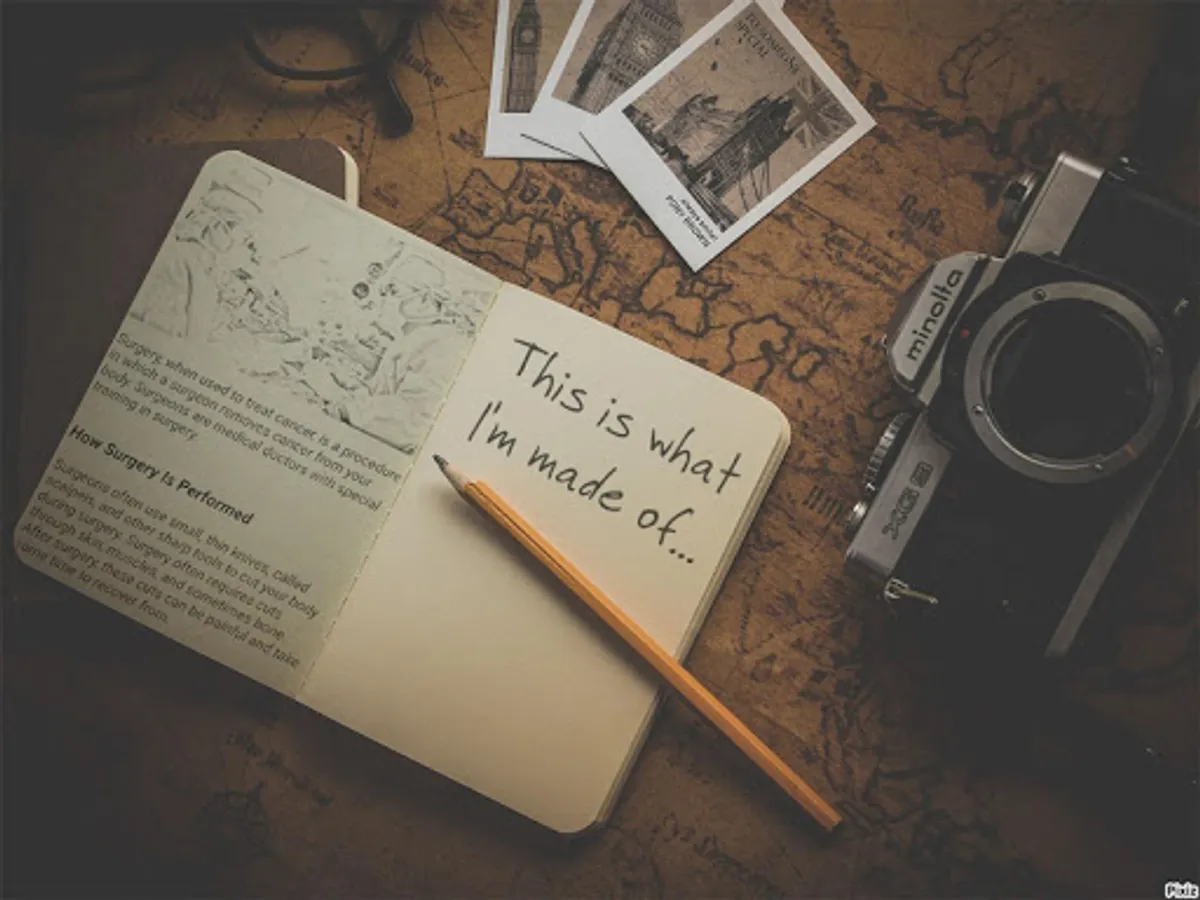 TO SOMEONE
SPECIAL
Surgery, when used to treat cancer, is a procedure
in which a surgeon removes cancer from your
body. Surgeons are medical doctors with special
training in surgery.
How Surgery Is Performed
Surgeons often use small, thin knives, called
scalpels, and other sharp tools to cut your body
during surgery. Surgery often requires cuts
through skin, muscles, and sometimes bone.
After surgery, these cuts can be painful and take
ome time to recover from.
This is what
I'm made of...
minolta
XG9
Pixiz